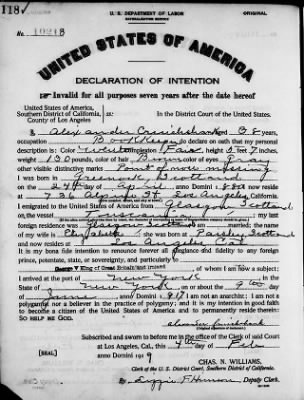 118
U. S. DEPARTMENT OF LABOR
NATURALIZATION SERVICE
ORIGINAL
No. 10218
UNITED STATES OF AMERICA
DECLARATION OF INTENTION
Invalid for all purposes seven years after the date hereof
United States of America,
Southern District of California,
County of Los Angeles
ss:
In the District Court of the United States.
I, Alexander Cruickshank, aged 38 years,
occupation Bookkeeper, do declare on oath that my personal
description is: Color White, complexion Fair, height 5 feet 7 inches,
weight 130 pounds, color of hair Brown, color of eyes Gray
other visible distinctive marks
I was born in Greenock Scotland
on the 24th day of April, anno Domini 1880; I now reside
at 736 St. Los Angeles, California.
I emigrated to the United States of America from Glasgow Scotland
on the vessel Tuscania; my last
foreign residence was Glasgow Scotland; I am married; the name
of my wife is Elizabeth; she was born at Paisley, Scotland
and now resides at Los Angeles Cal.
It is my bona fide intention to renounce forever all allegiance and fidelity to any foreign
prince, potentate, state, or sovereignty, and particularly to
George V King of Great Britain and Ireland, of whom I am now a subject;
I arrived at the port of New York, in the
State of New York, on or about the 9th day
of, anno Domini 1917; I am not an anarchist; I am not a
polygamist nor a believer in the practice of polygamy; and it is my intention in good faith
to become a citizen of the United States of America and to permanently reside therein:
SO HELP ME GOD.
Alexander Cruickshank
(Original signature of declarant)
Subscribed and sworn to before me in the office of the Clerk of said Court
at Los Angeles, Cal., this day of Feb
anno Domini 1919
[SEAL]
CHAS. N. WILLIAMS,
Clerk of the U. S. District Court, Southern District of California.
By, Deputy Clerk.